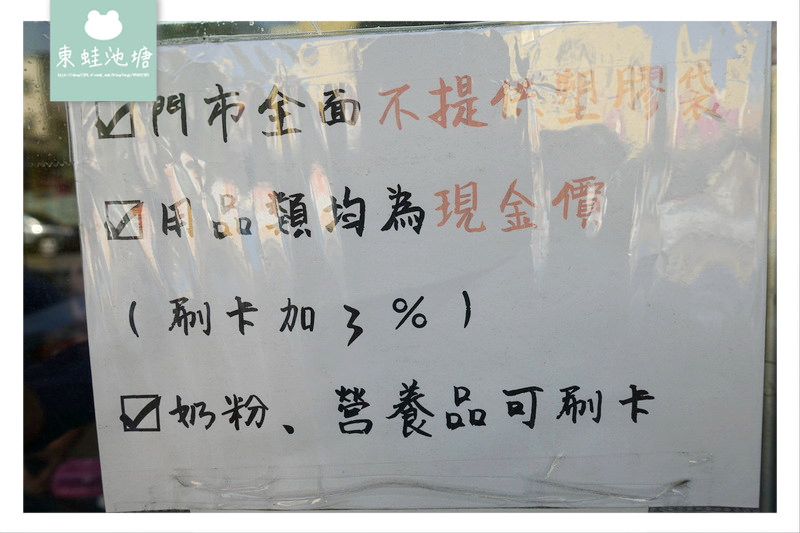 東蛙池塘
☑門市全面不提供塑膠袋
☑用品類均為現金價
(刷卡加3%)
☑奶粉、營養品可刷卡